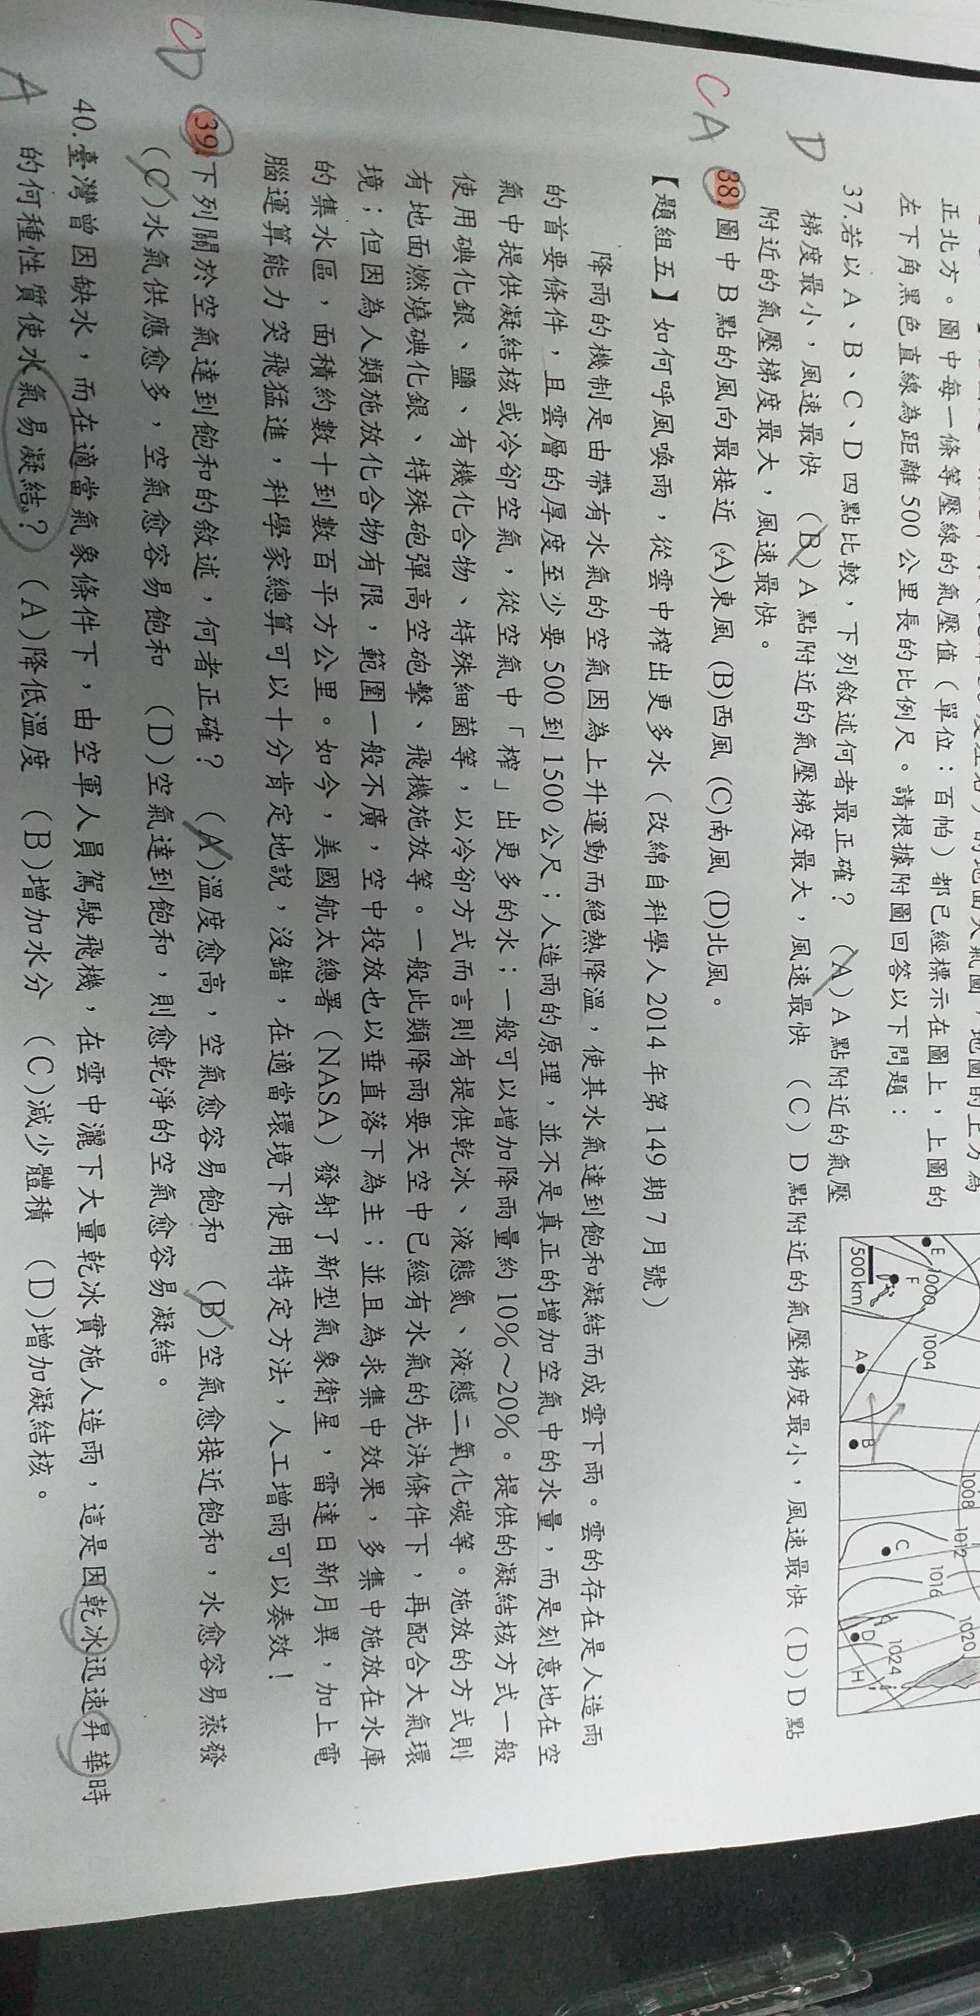 正北方。圖中每一條等壓線的氣壓值（單位：百帕）都已經標示在圖上，上圖的
左下角黑色直線為距離500公里長的比例尺。請根據附圖回答以下問題：
D
37.若以A、B、C、D四點比較，下列敘述何者最正確？ (A)A點附近的氣壓
梯度最小，風速最快 (B)A點附近的氣壓梯度最大，風速最快 (C)D點附近的氣壓梯度最小，風速最快 (D)D點
附近的氣壓梯度最大，風速最快。
CA
38.圖中B點的風向最接近 (A)東風 (B)西風 (C)南風 (D)北風。
E
1000
F
500km
1004
A
B
1008
1012
C
1016
1020
D
1024
H
【題組五】如何呼風喚雨，從雲中榨出更多水（改綿自科學人2014年第149期7月號）
降雨的機制是由帶有水氣的空氣因為上升運動而絕熱降溫，使其水氣達到飽和凝結而成雲下雨。雲的存在是人造雨
的首要條件，且雲層的厚度至少要500到1500公尺；人造雨的原理，並不是真正的增加空氣中的水量，而是刻意地在空
氣中提供凝結核或冷卻空氣，從空氣中「榨」出更多的水；一般可以增加降雨量約10%～20%。提供的凝結核方式一般
使用碘化銀、鹽、有機化合物、特殊細菌等，以冷卻方式而言則有提供乾冰、液態氮、液態二氧化碳等。施放的方式則
有地面燃燒碘化銀、特殊砲彈高空砲擊、飛機施放等。一般此類降雨要天空中已經有水氣的先決條件下，再配合大氣環
境；但因為人類施放化合物有限，範圍一般不廣，空中投放也以垂直落下為主；並且為求集中效果，多集中施放在水庫
的集水區，面積約數十到數百平方公里。如今，美國航太總署（NASA）發射了新型氣象衛星，雷達日新月異，加上電
腦運算能力突飛猛進，科學家總算可以十分肯定地說，沒錯，在適當環境下使用特定方法，人工增雨可以奏效！
CD
39.下列關於空氣達到飽和的敘述，何者正確？ (A)溫度愈高，空氣愈容易飽和 (B)空氣愈接近飽和，水愈容易蒸發
(C)水氣供應愈多，空氣愈容易飽和 (D)空氣達到飽和，則愈乾淨的空氣愈容易凝結。
A
40.臺灣曾因缺水，而在適當氣象條件下，由空軍人員駕駛飛機，在雲中灑下大量乾冰實施人造雨，這是因乾冰迅速昇華時
的何種性質使水氣易凝結？ (A)降低溫度 (B)增加水分 (C)減少體積 (D)增加凝結核。